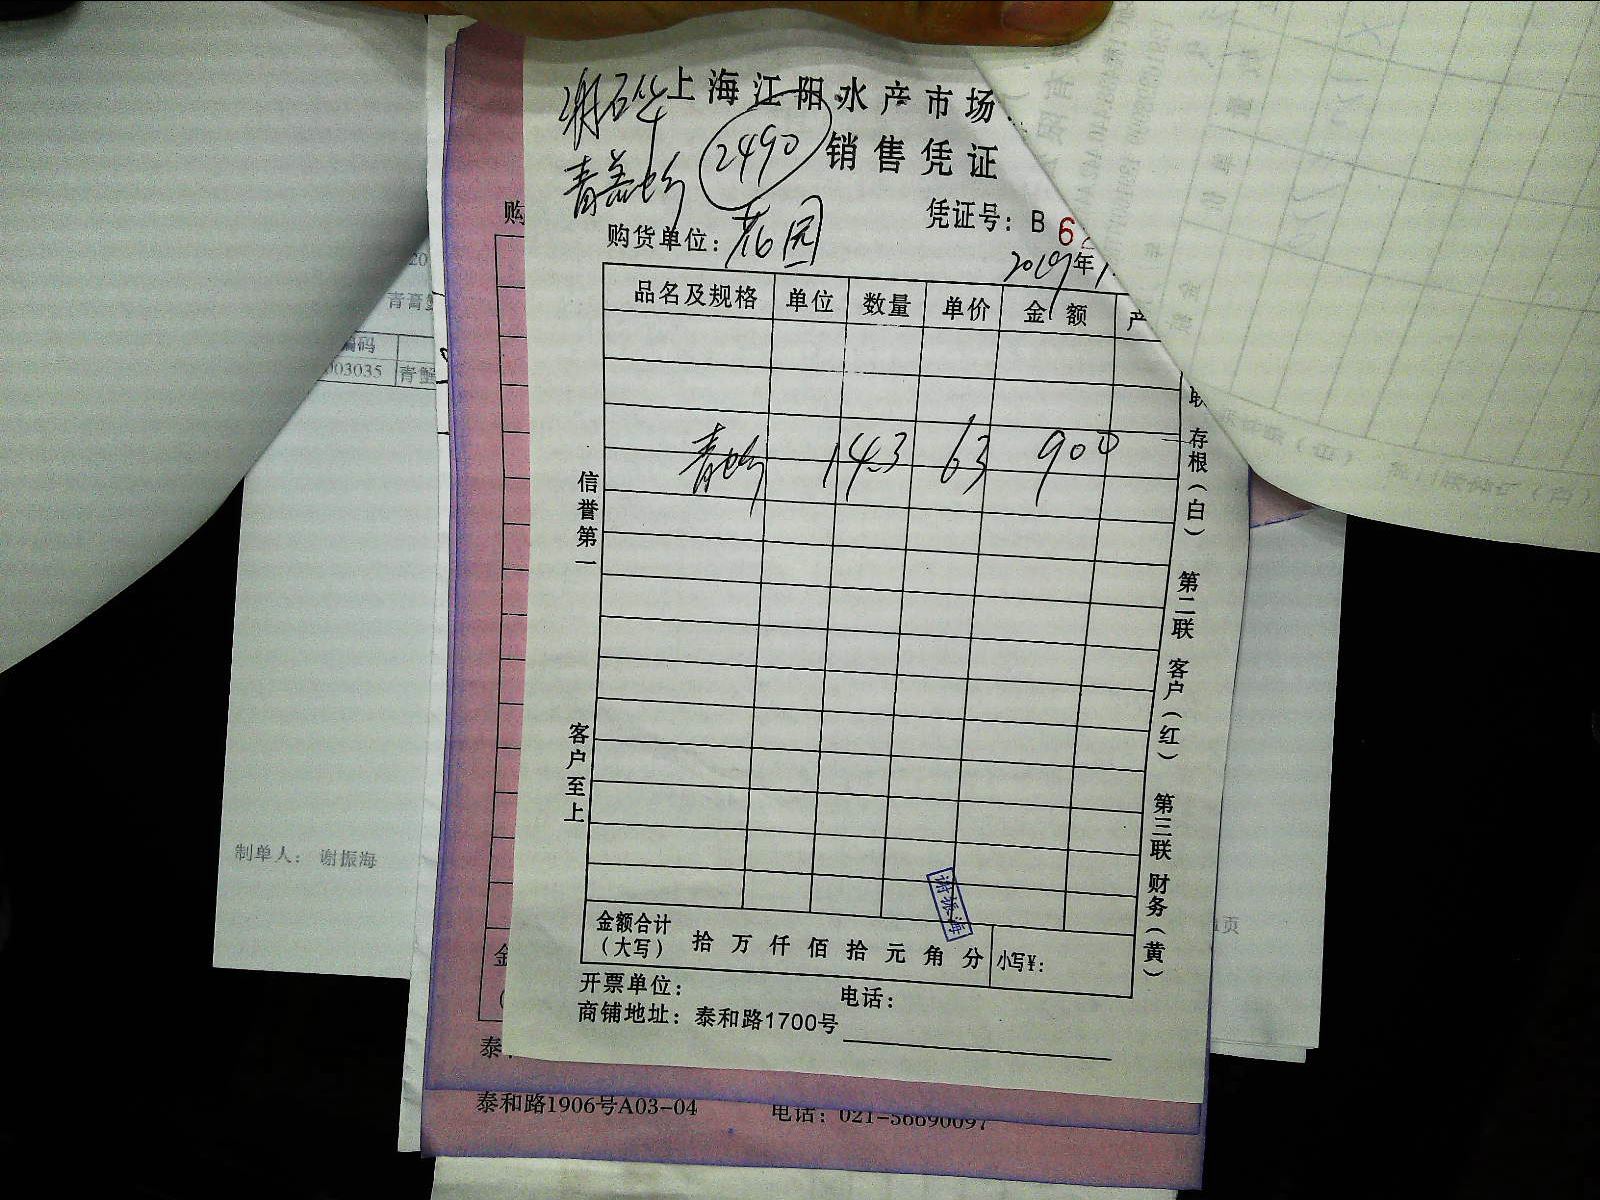 上海江阳水产市场
2490
销售凭证
凭证号：B 6
购货单位：花园
2019年
品名及规格 单位 数量 单价 金额 产
青蛤 14.3 63 900
信誉第一
客户至上
联 存根（白） 第二联 客户（红） 第三联 财务（黄）
谢振海
金额合计（大写） 拾 万 仟 佰 拾 元 角 分 小写¥：
开票单位： 电话：
商铺地址：泰和路1700号
购
20
青膏蟹
编码
003035 青蟹
制单人： 谢振海
页
金
泰
泰和路1906号A03-04 电话：021-56690097